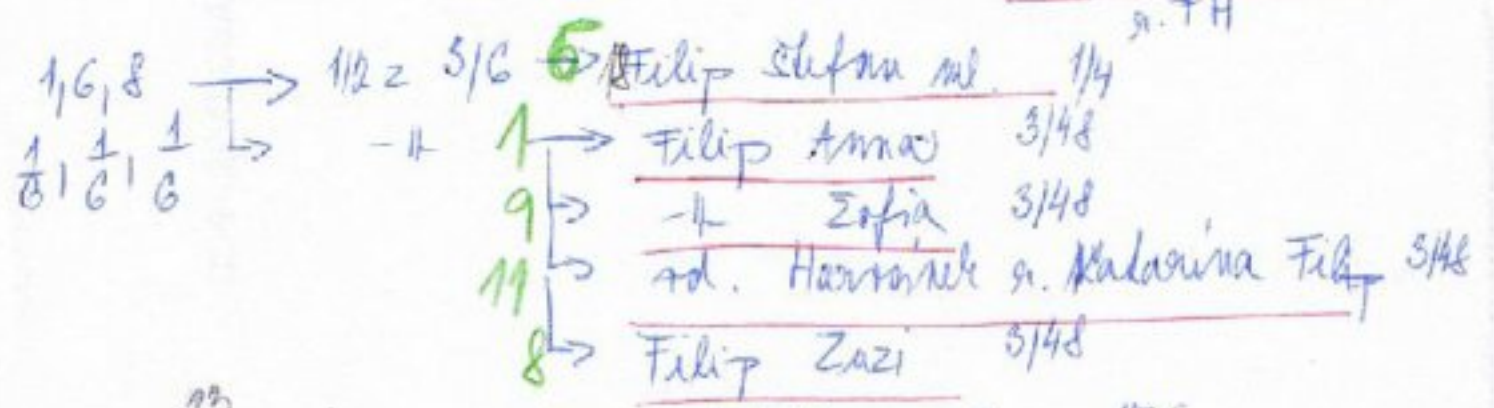 r. FH
1,6,8 → 1/2 z 3/6 6 → Filip Štefan ml. 1/4
1/6, 1/6, 1/6 → -||- 1 → Filip Anna 3/48
9 → -||- Zofia 3/48
11 → rd. r. Katarína Filip 3/48
8 → Filip Zuzi 3/48
23